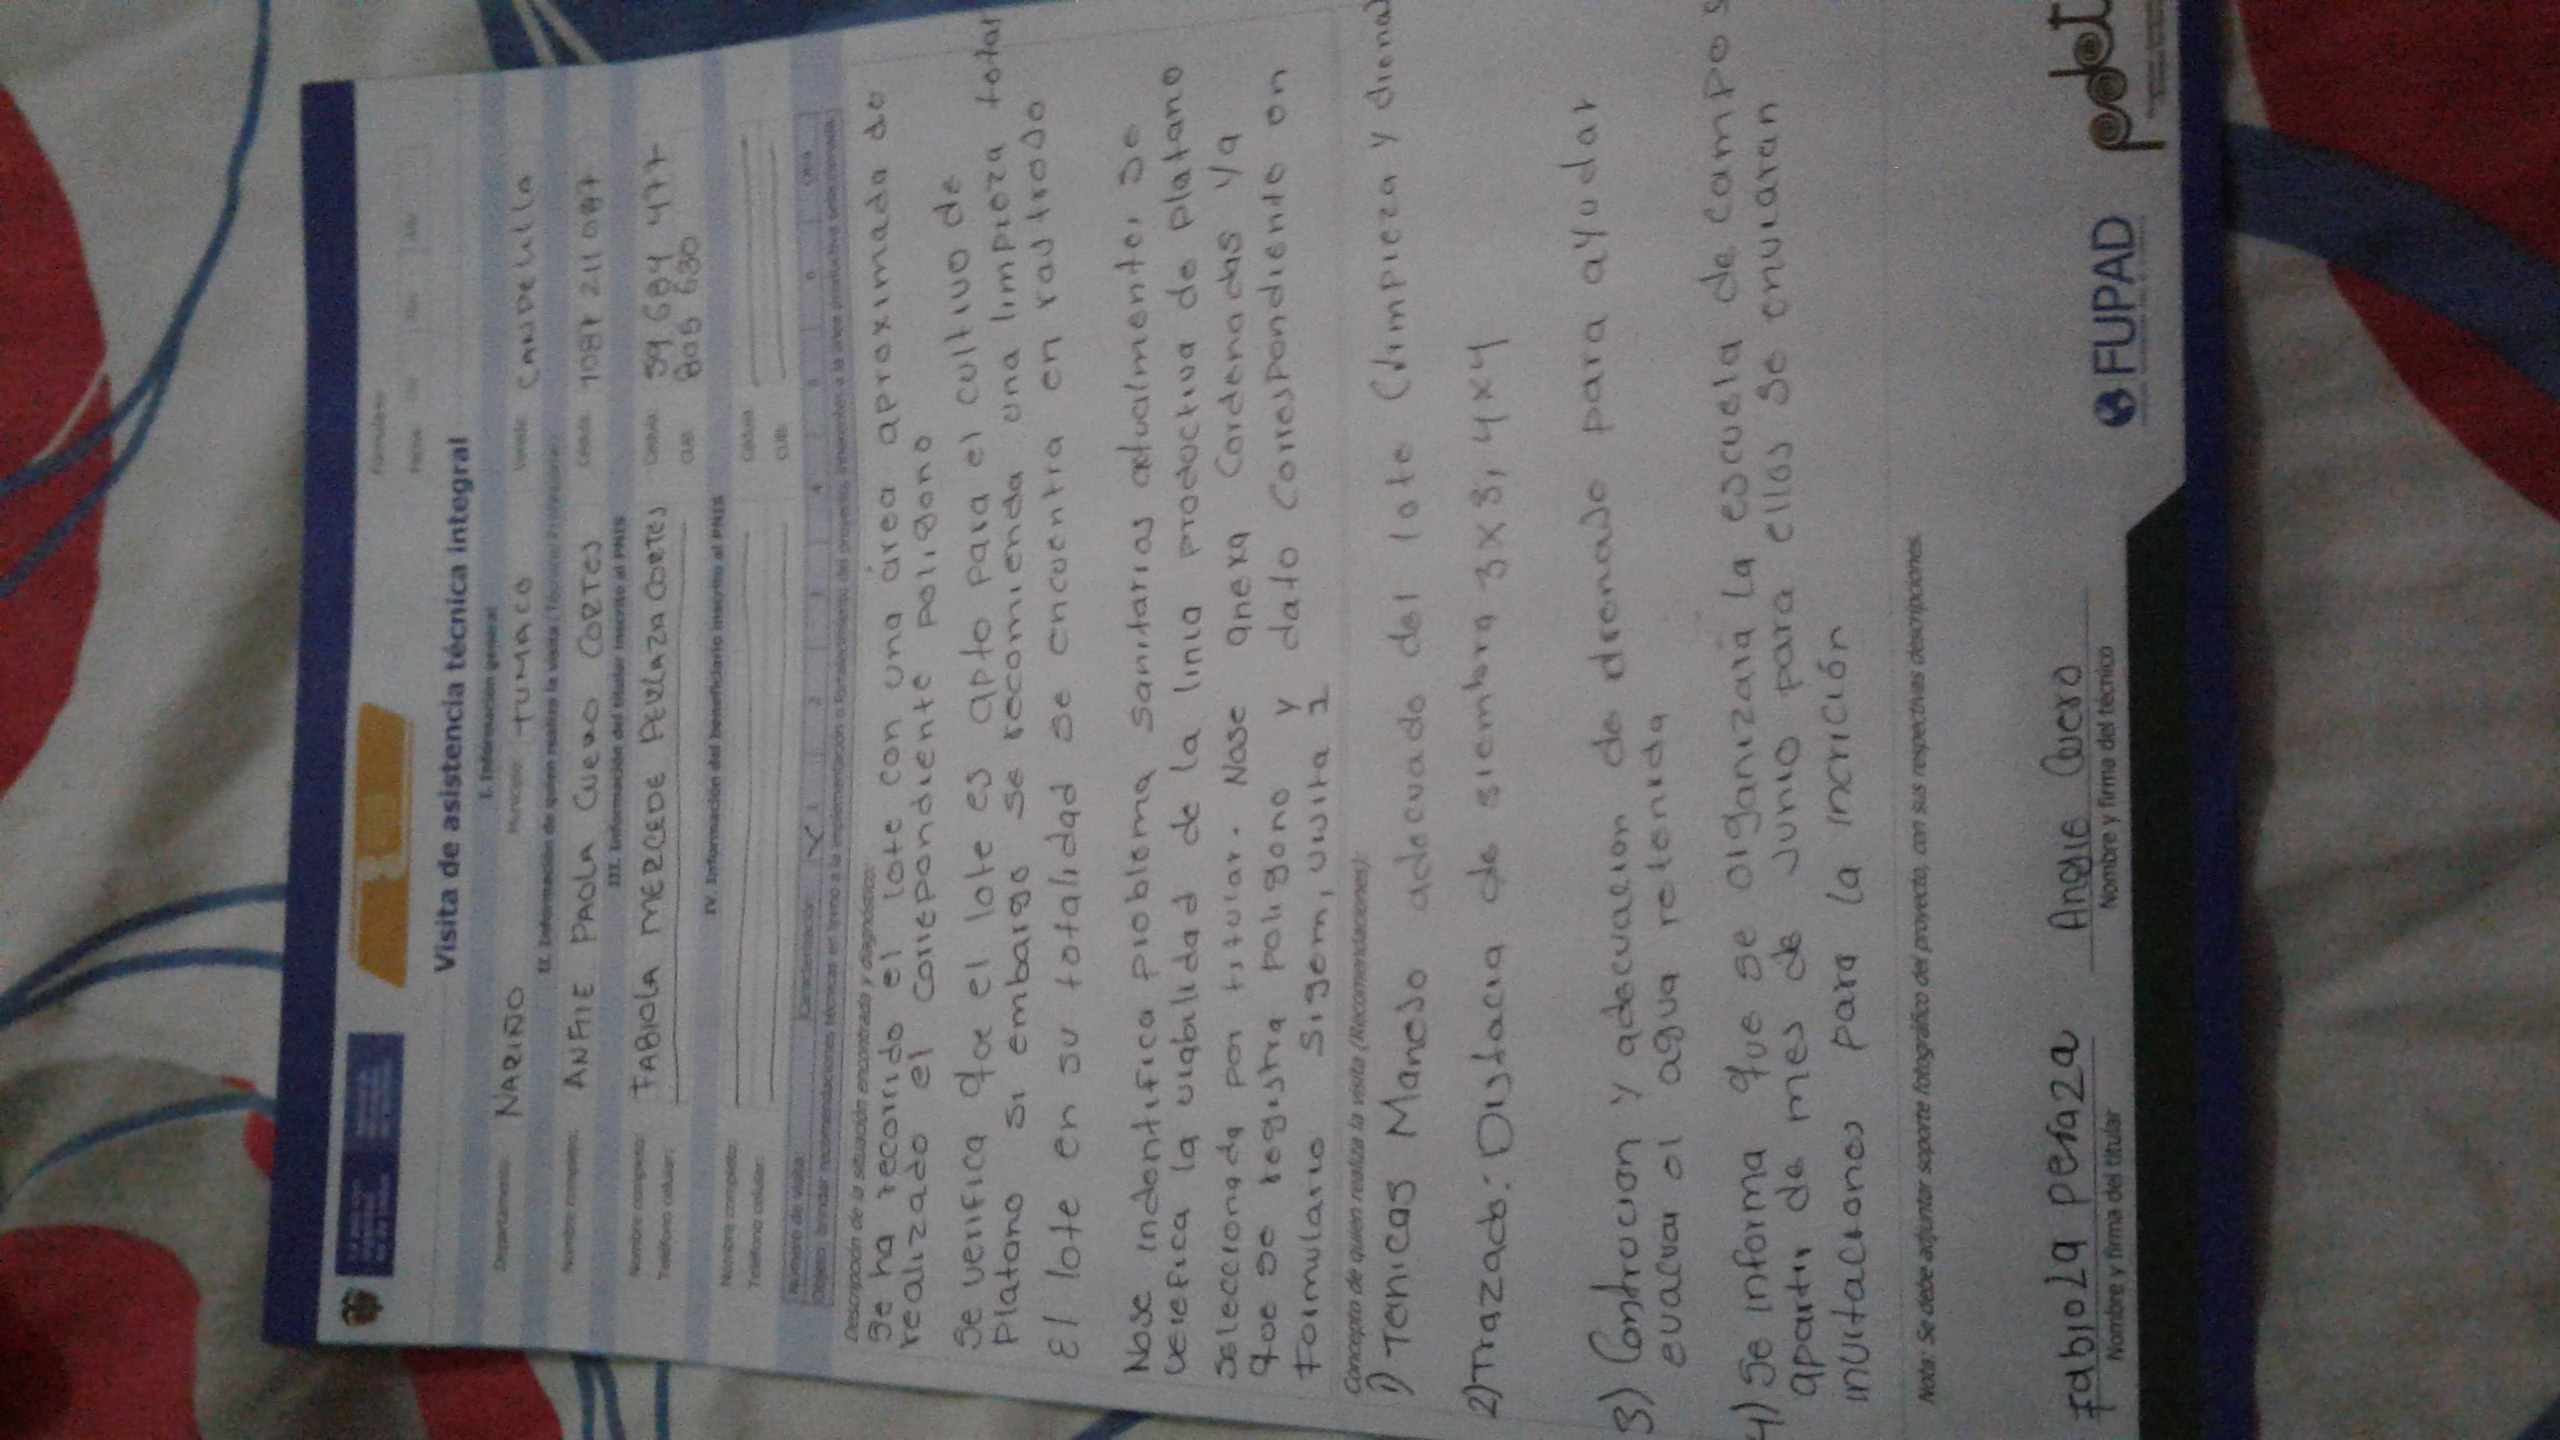 Formulario:
Fecha:
Visita de asistencia técnica integral
I. Información general
Departamento: NARIÑO Municipio: TUMACO Vereda: CANDELILLA
II. Información de quien realiza la visita (Técnico/Profesional)
Nombre completo: PAOLA CUERO CORTES Cédula: 1087 211 087
III. Información del titular inscrito al PNIS
Nombre completo: FABIOLA MERCEDE PERLAZA CORTES Cédula: 59 684 477
Teléfono celular: CUB: 805 630
IV. Información del beneficiario inscrito al PNIS
Nombre completo: Cédula:
Teléfono celular: CUB:
Número de visita: Caracterización: X 1 2 3 4 5 6 Otra
Objeto: brindar recomendaciones técnicas en torno a la implementación o fortalecimiento del proyecto, inherentes a la línea productiva seleccionada
Descripción de la situación encontrada y diagnóstico:
Se ha recorrido el lote con una área aproximada de
realizado el correpondiente poligono
Se verifica que el lote es apto para el cultivo de
Platano si embargo se recomienda una limpieza total
El lote en su totalidad se encuentra en rastrojo
Nose indentifica problema sanitarios actualmente, se
verefica la viabilidad de la linia productiva de platano
seleccionada por titular. Nose anexa Cordenadas ya
que se registra poligono y dato correspondiente en
Formulario sigem, visita 1
Concepto de quien realiza la visita (Recomendaciones):
1) Tenicas Manejo adecuado del lote (limpieza y
2) Trazado: Distacia de siembra 3x3, 4x4
3) Contrucion y adecuacion de drenajo para ayudar
evacuar el agua retenida
4) Se informa que se organizara la escuela de campo
apartir de mes de junio para ellos se enviaran
invitaciones para la incrición
Nota: Se debe adjuntar soporte fotográfico del proyecto, con sus respectivas descripciones.
Fabiola peraza Angie Cuero
Nombre y firma del titular Nombre y firma del técnico
FUPAD pdet